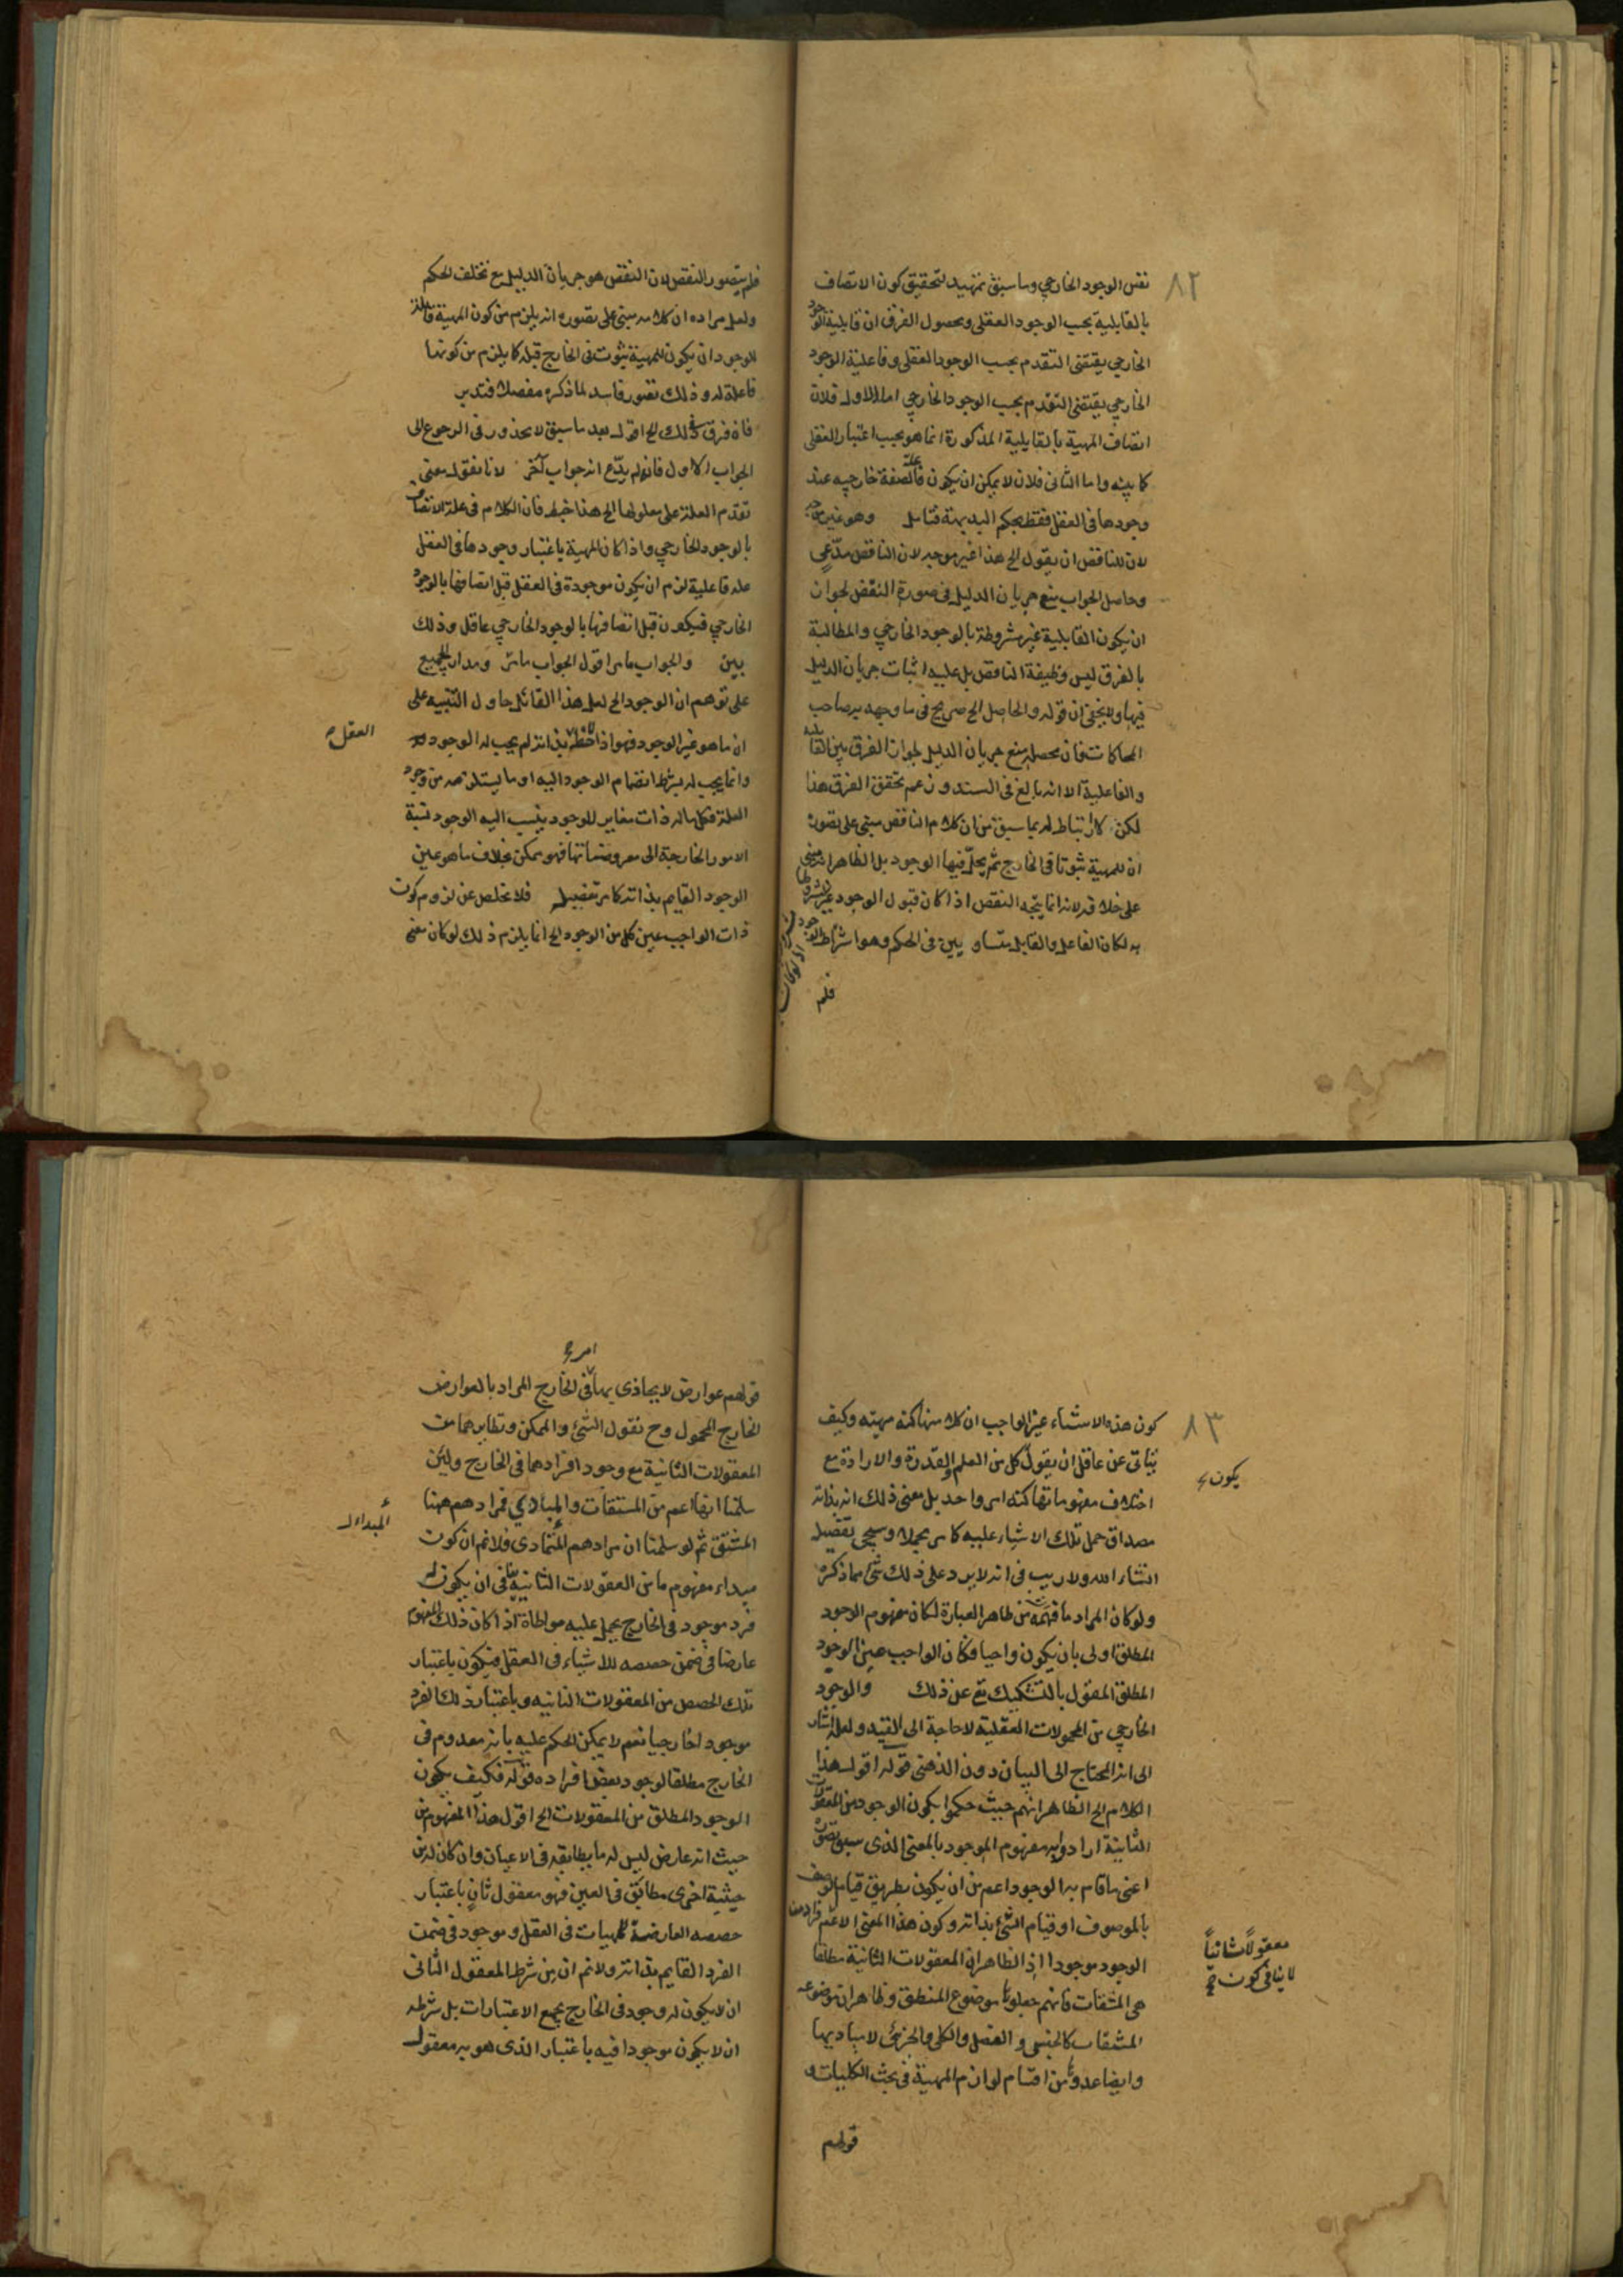 ٨٢
نفس الوجود الخارجي وما سبق تمهيد لتحقيق كون الاتصاف
بالقابلية بحسب الوجود العقلى ومحصول الفرق ان قابلية الوجود
الخارجي يقتضى التقدم بحسب الوجود العقلى وفاعلية الوجود
الخارجي يقتضى التقدم بحسب الوجود الخارجي اما الاول فلان
اتصاف المهية بالقابلية المذكورة انما هو بحسب اعتبار العقلى
كما بينه واما الثانى فلان لا يمكن ان يكون علة لصفة خارجيه عند
وجودها فى العقل فقط بحكم البديهة فتامل وهو غير موجه
لان للناقض ان يقول الخ هذا غير موجه لان الناقض مدّعى
وحاصل الجواب منع جريان الدليل فى صورة النقض لجواز
ان يكون القابلية غير مشروطة بالوجود الخارجي والمطالبة
بالفرق ليس وظيفة الناقض بل عليه اثبات جريان الدليل
فيها ولا يخفى ان قوله والحاصل الخ صريح فى ما وجهه به صاحب
المحاكمات فان محصله منع جريان الدليل لجواز الفرق بين القابلية
والفاعلية الا انه بالغ فى السند وزعم تحقق الفرق هذا
لكن لا ارتباط له بما سبق من ان كلام الناقض مبنى على تصور
ان للمهية ثبوتا فى الخارج ثم يحلّ فيها الوجود بل الظاهر انه مبنى
على خلافه لانه انما يتجه النقض اذا كان قبول الوجود غير مشروط
به لكان الفاعل والقابل متساويين فى الحكم وهو اشتراط الوجود
اذ لو كان
فلم
فلم يتصور النقض لان النقض هو جريان الدليل مع تخلف الحكم
ولعل مراده ان كلامه مبنى على تصوره انه يلزم من كون المهية قابلة
للوجود ان يكون للمهية ثبوت فى الخارج قبله كما يلزم من كونها
فاعلة له وذلك تصور فاسد لما ذكره مفصلا فتدبر
فان فرق فى ذلك الخ اقول بعد ما سبق لا محذور فى الرجوع الى
الجواب الاول فانه لم يدّع انه جواب آخر لانا نقول معنى
تقدم العلة على معلولها الخ هذا خبط فان الكلام فى علة الاتصاف
بالوجود الخارجي واذا كان المهية باعتبار وجودها فى العقل
علة فاعلية لزم ان يكون موجودة فى العقل قبل اتصافها بالوجود
الخارجي فيكون قبل اتصافها بالوجود الخارجي عاقل وذلك
بين والجواب ما مر اقول الجواب ما مر ومدار الجميع
على توهم ان الوجود الخ لعل هذا القائل حاول التنبيه على
العقل
ان ما هو غير الوجود فهو اذا لاحظه بذاته لم يجب له الوجود
وانما يجب له بشرط انضمام الوجود اليه او ما يستلزمه من وجود
العلة فكل ماله ذات مغاير للوجود ينسب اليه الوجود نسبة
الامور الخارجة الى معروضاتها فهو ممكن بخلاف ما هو عين
الوجود القايم بذاته كما مر تفصيله فلا مخلص عن لزوم كون
ذات الواجب عين كل من الوجود الخ انما يلزم ذلك لو كان معنى
٨٣
كون هذه الاشياء عين الواجب ان كلا منها كنه مهيته وكيف
يتأتى عن عاقل ان يقول كل من العلم والقدرة والارادة مع
يكون
اختلاف مفهوماتها كنه امر واحد بل معنى ذلك انه بذاته
مصداق حمل تلك الاشياء عليه كما مر مجملا وسيجئ تفصيله
انشاء الله ولا ريب فى انه لا يرد على ذلك شئ مما ذكره
ولو كان المراد ما فهمه من ظاهر العبارة لكان مفهوم الوجود
المطلق اولى بان يكون واجبا فكان الواجب عين الوجود
المطلق المقول بالتشكيك تع عن ذلك والوجود
الخارجي من المحمولات العقلية لا حاجة الى القيد ولعله اشار
الى انه المحتاج الى البيان دون الذهنى قوله اقول هذا
الكلام الخ الظاهر انهم حيث حكموا بكون الوجود من المعقولات
الثانية ارادوا به مفهوم الموجود بالمعنى الذى سبق تصوره
اعنى ما قام به الوجود اعم من ان يكون بطريق قيام الوصف
بالموصوف او قيام الشئ بذاته وكون هذا المعنى الاعم
معقولاً ثانياً
لا ينافى كون
الوجود موجودا اذ الظاهر ان المعقولات الثانية مطلقا
هى المشتقات فانهم جعلوها موضوع المنطق وظاهر ان موضوعه
المشتقات كالجنس والفصل والكلى والجزئى لا مباديها
وايضا عدوها من اقسام لوازم المهية فى بحث الكليات و
قولهم
امر
قولهم عوارض لا يحاذى بها فى الخارج المراد بالعوارض
الخارج المحمول وح نقول الشئ والممكن ونظايرهما من
المعقولات الثانية مع وجود افرادهما فى الخارج ولئن
سلمنا انها اعم من المشتقات والمبادي فمرادهم ههنا
المبداء
المشتق ثم لو سلمنا ان مرادهم المبادى فلا نم ان كون
مبداء مفهوم ما من المعقولات الثانية ينافى ان يكون له
فرد موجود فى الخارج يحمل عليه مواطاة اذا كان ذلك المفهوم
عارضا فى ضمن حصصه للاشياء فى العقل فيكون باعتبار
تلك الحصص من المعقولات الثانيه وباعتبار ذلك الفرد
موجودا خارجيا نعم لا يمكن الحكم عليه بانه معدوم فى
الخارج مطلقا لوجود بعض افراده قوله فكيف يكون
الوجود المطلق من المعقولات الخ اقول هذا المفهوم من
حيث انه عارض ليس له ما يطابقه فى الاعيان وان كان له من
حيثية اخرى مطابق فى العين فهو معقول ثانٍ باعتبار
حصصه العارضة للمهيات فى العقل وموجود فى ضمن
الفرد القايم بذاته ولا نم ان من شرط المعقول الثانى
ان لا يكون له وجود فى الخارج بجميع الاعتبارات بل شرطه
ان لا يكون موجودا فيه باعتبار الذى هو به معقول